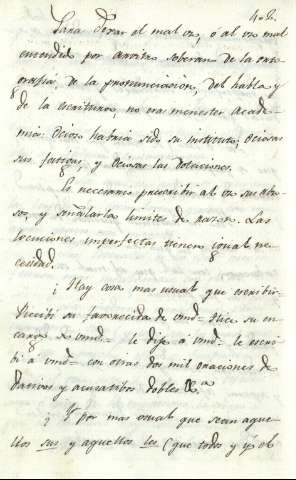 Para dexar el mal uso, ó al uso mal
entendido por arvitro soberano de la orto
grafia, de la pronunciacion, del habla y
de la escritura, no era menester Acade-
mia: Ocioso habria sido su instituto, ociosas
sus fatigas, y ociosas las dotaciones.
Es necesario prescribir al uso sus abu-
sos, y señalarle limites de razon. Las
locuciones imperfectas tienen igual ne-
cesidad.
¿Hay cosa mas usual que escribir-
Recibi su favorecida de vmd- Hice su en
cargo de vmd- le dije á vmd- le escri-
bi á vmd- con otras dos mil oraciones de
dativos y acusativos dobles &.ª
¿Y por mas usual que sean aque-
llos sus y aquellos les (que todos y yo el